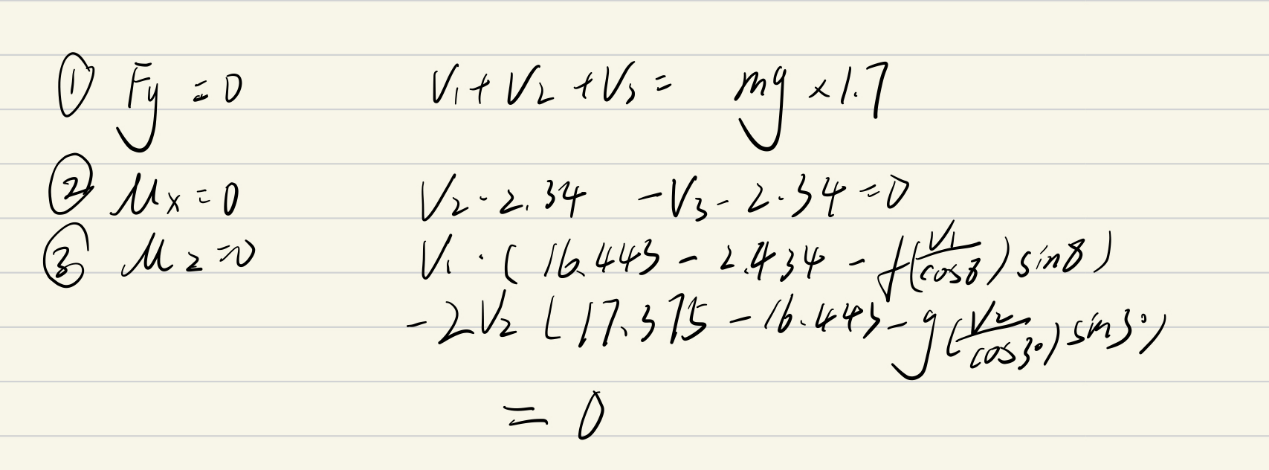 ① Fy = 0 V₁ + V₂ + V₃ = mg × 1.7
② Mx = 0 V₂ · 2.34 - V₃ - 2.34 = 0
③ Mz = 0 V₁ · ( 16.443 - 2.434 - f(V₁/cos8) sin8 )
- 2V₂ ( 17.375 - 16.443 - g(V₂/cos3°) sin3° )
= 0